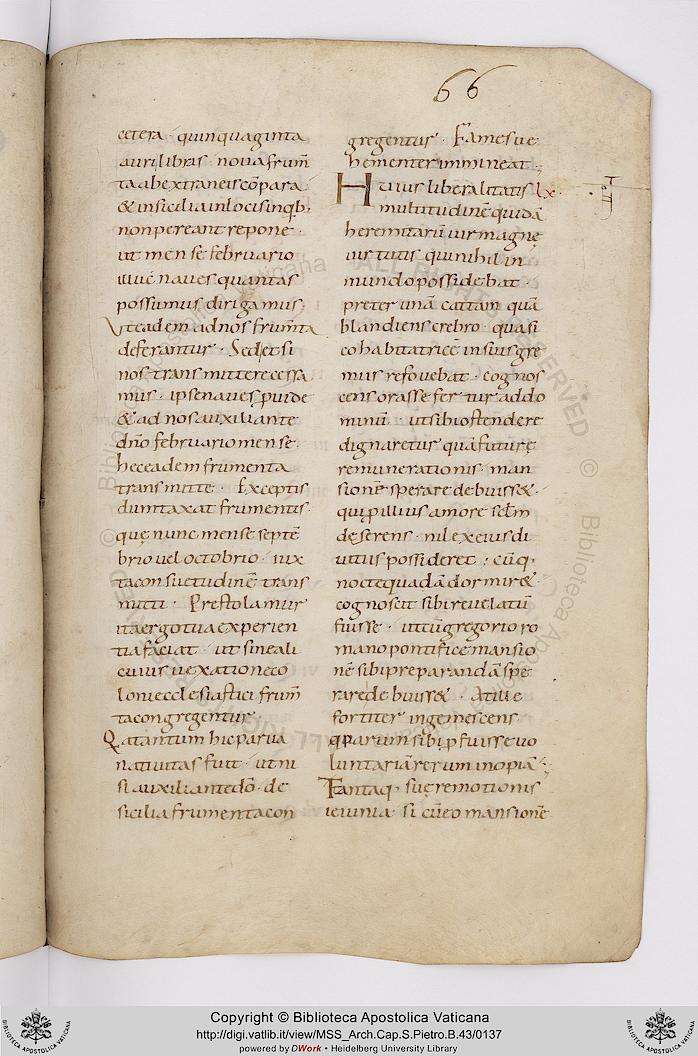 66
cetera · quinquaginta
auri libris · noua frum̄
ta ab extraneis cōpara
& in sicilia in locis inq̄b·
non pereant repone ·
ut mense februario
illuc naues quantas
possumus dirigamus
Vt eadem ad nos frum̄ta
deferantur · Sed et si
nos transmittere cessa
mus · ipse naues p̱uide
& ad nos auxiliante
dn̄o februario mense ·
hec eadem frumenta
transmitte · Exceptis
dumtaxat frumentis ·
quę nunc mense septē
brio uel octobrio · iux
ta consuetudinē trans
mitti · Prestolamur
ita ergo tua experien
tia faciat · ut sine ali
cuius uexatione co
loni ecclesiastici frum̄
ta congregentur
Qa tantum hic parua
natiuitas fuit · ut ni
si auxiliante dō · de
sicilia frumenta con
gregentur · Fames ue
hementer immineat ·
Huius liberalitatis lx
multitudinē quidā
heremitarū uir magnę
uirtutis qui nihil in
mundo possidebat ·
preter unā cattam quā
blandiens crebro · quasi
cohabitatricē in suis gre
mus refouebat · cognos
cens orasse fertur ad do
minū · ut sibi ostendere
dignaretur quā futurę
remunerationis · man
sionē sperare debuiss& ·
qui ꝑ illius amore sc̄lm
deserens · nil ex eius di
uitiis possideret · cūq;
nocte quadā dormir&
cognoscit sibi reuelatū
fuisse · ut cū gregorio ro
mano pontifice mansio
nē sibi preparandā spe
rare debuiss& · At ille
fortiter ingemescens
q̄ parum sibi ꝓfuisse uo
luntariā rerum inopiā
Tantaq; suę remotionis
ieiunia · si cū eo mansionē
Copyright © Biblioteca Apostolica Vaticana
http://digi.vatlib.it/view/MSS_Arch.Cap.S.Pietro.B.43/0137
powered by DWork • Heidelberg University Library